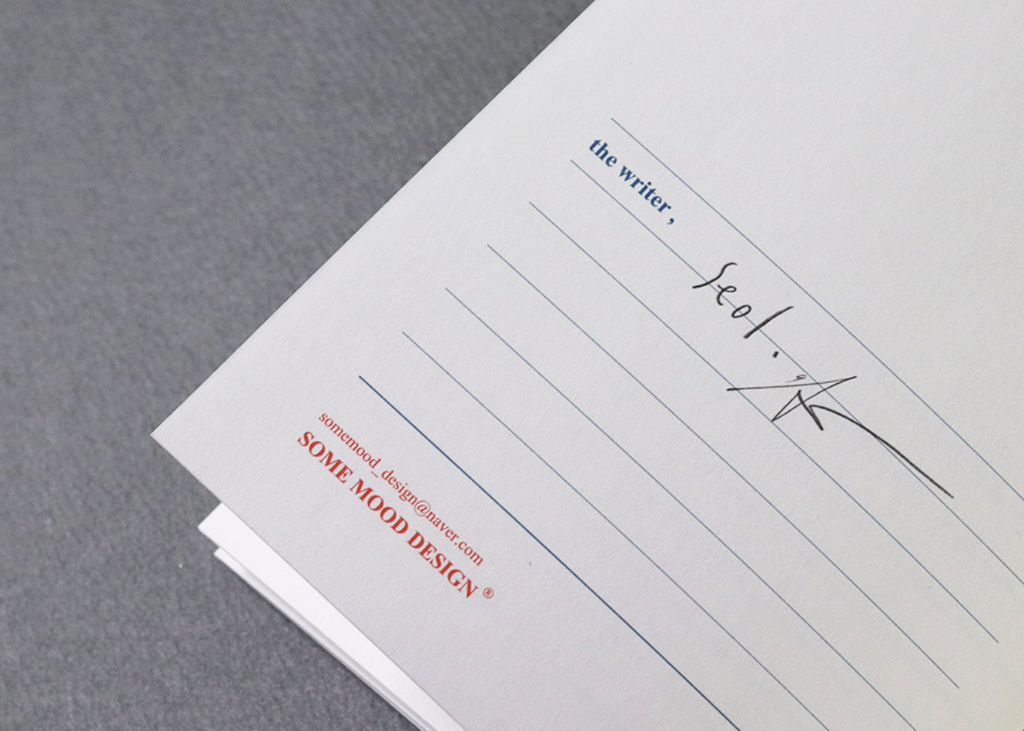 the writer ,
seol.
somemood_design@naver.com
SOME MOOD DESIGN ®